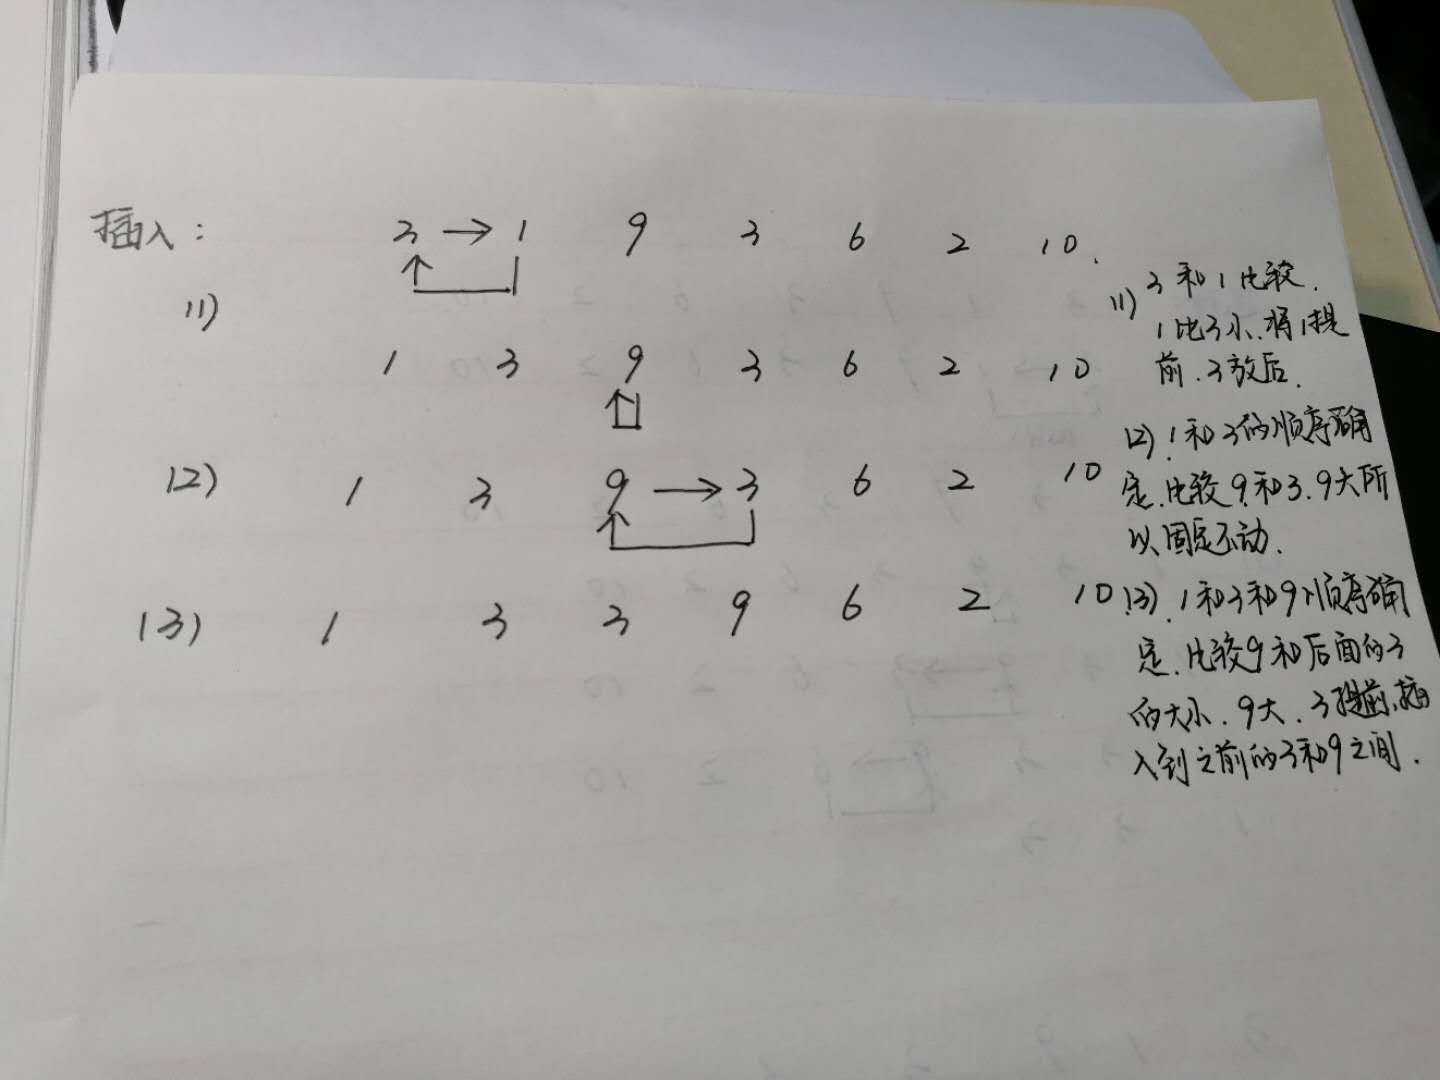 插入：
3 → 1 9 3 6 2 10.
(1)
1 3 9 3 6 2 10
(2) 1 3 9 → 3 6 2 10
(3) 1 3 3 9 6 2 10
(1) 3和1比较.
1比3小.将1提
前.3放后.
(2).1和3的顺序确
定.比较9和3.9大所
以固定不动.
(3).1和3和9顺序确
定.比较9和后面的3
的大小.9大.3提前,插
入到之前的3和9之间.